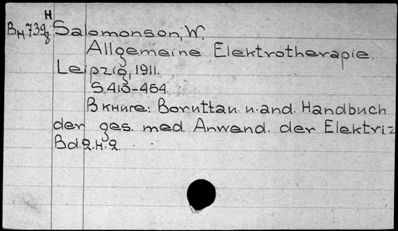 H
Bн739g Salomonson, W.
Allgemeine Elektrotherapie.
Leipzig, 1911.
S.413-464.
В книге: Boruttau u. and. Handbuch
der ges. med Anwend. der Elektriz
Bd.2.H.2.